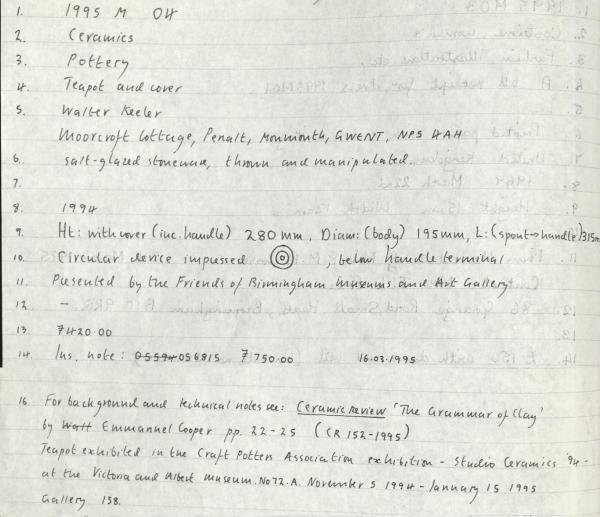 1. 1995 M 04
2. Ceramics
3. Pottery
4. Teapot and cover
5. Walter Keeler
Moorcroft Cottage, Penalt, Monmouth, GWENT, NP5 4AH
6. salt-glazed stoneware, thrown and manipulated.
7.
8. 1994
9. Ht: with cover (inc. handle) 280 mm, Diam: (body) 195mm, L: (spout→handle) 315m
10. Circular device impressed , below handle terminal
11. Presented by the Friends of Birmingham Museums and Art Gallery
12 –
13. £420.00
14. Ins. note: 05594 056815 £750.00 16.03.1995
16. For background and technical notes see: Ceramic Review 'The Grammar of Clay'
by Watt Emmannuel Cooper pp. 22-25 (CR 152-1995)
Teapot exhibited in the Craft Potters Association exhibition - Studio Ceramics '94 -
at the Victoria and Albert Museum. No 72.A. November 5 1994 - January 15 1995
Gallery 138.